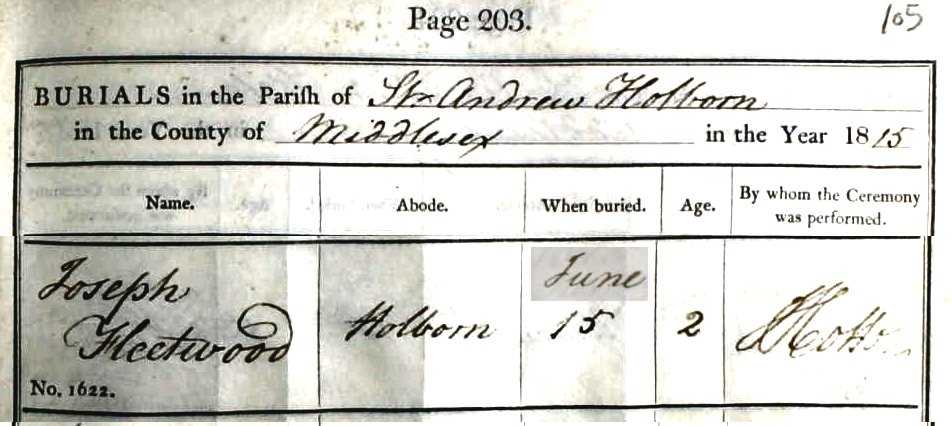 Page 203.
105
BURIALS in the Pariſh of St. Andrew Holborn
in the County of Middlesex in the Year 1815
Name. Abode. When buried. Age. By whom the Ceremony was performed.
Joseph
Fleetwood
Holborn
June
15
2
No. 1622.